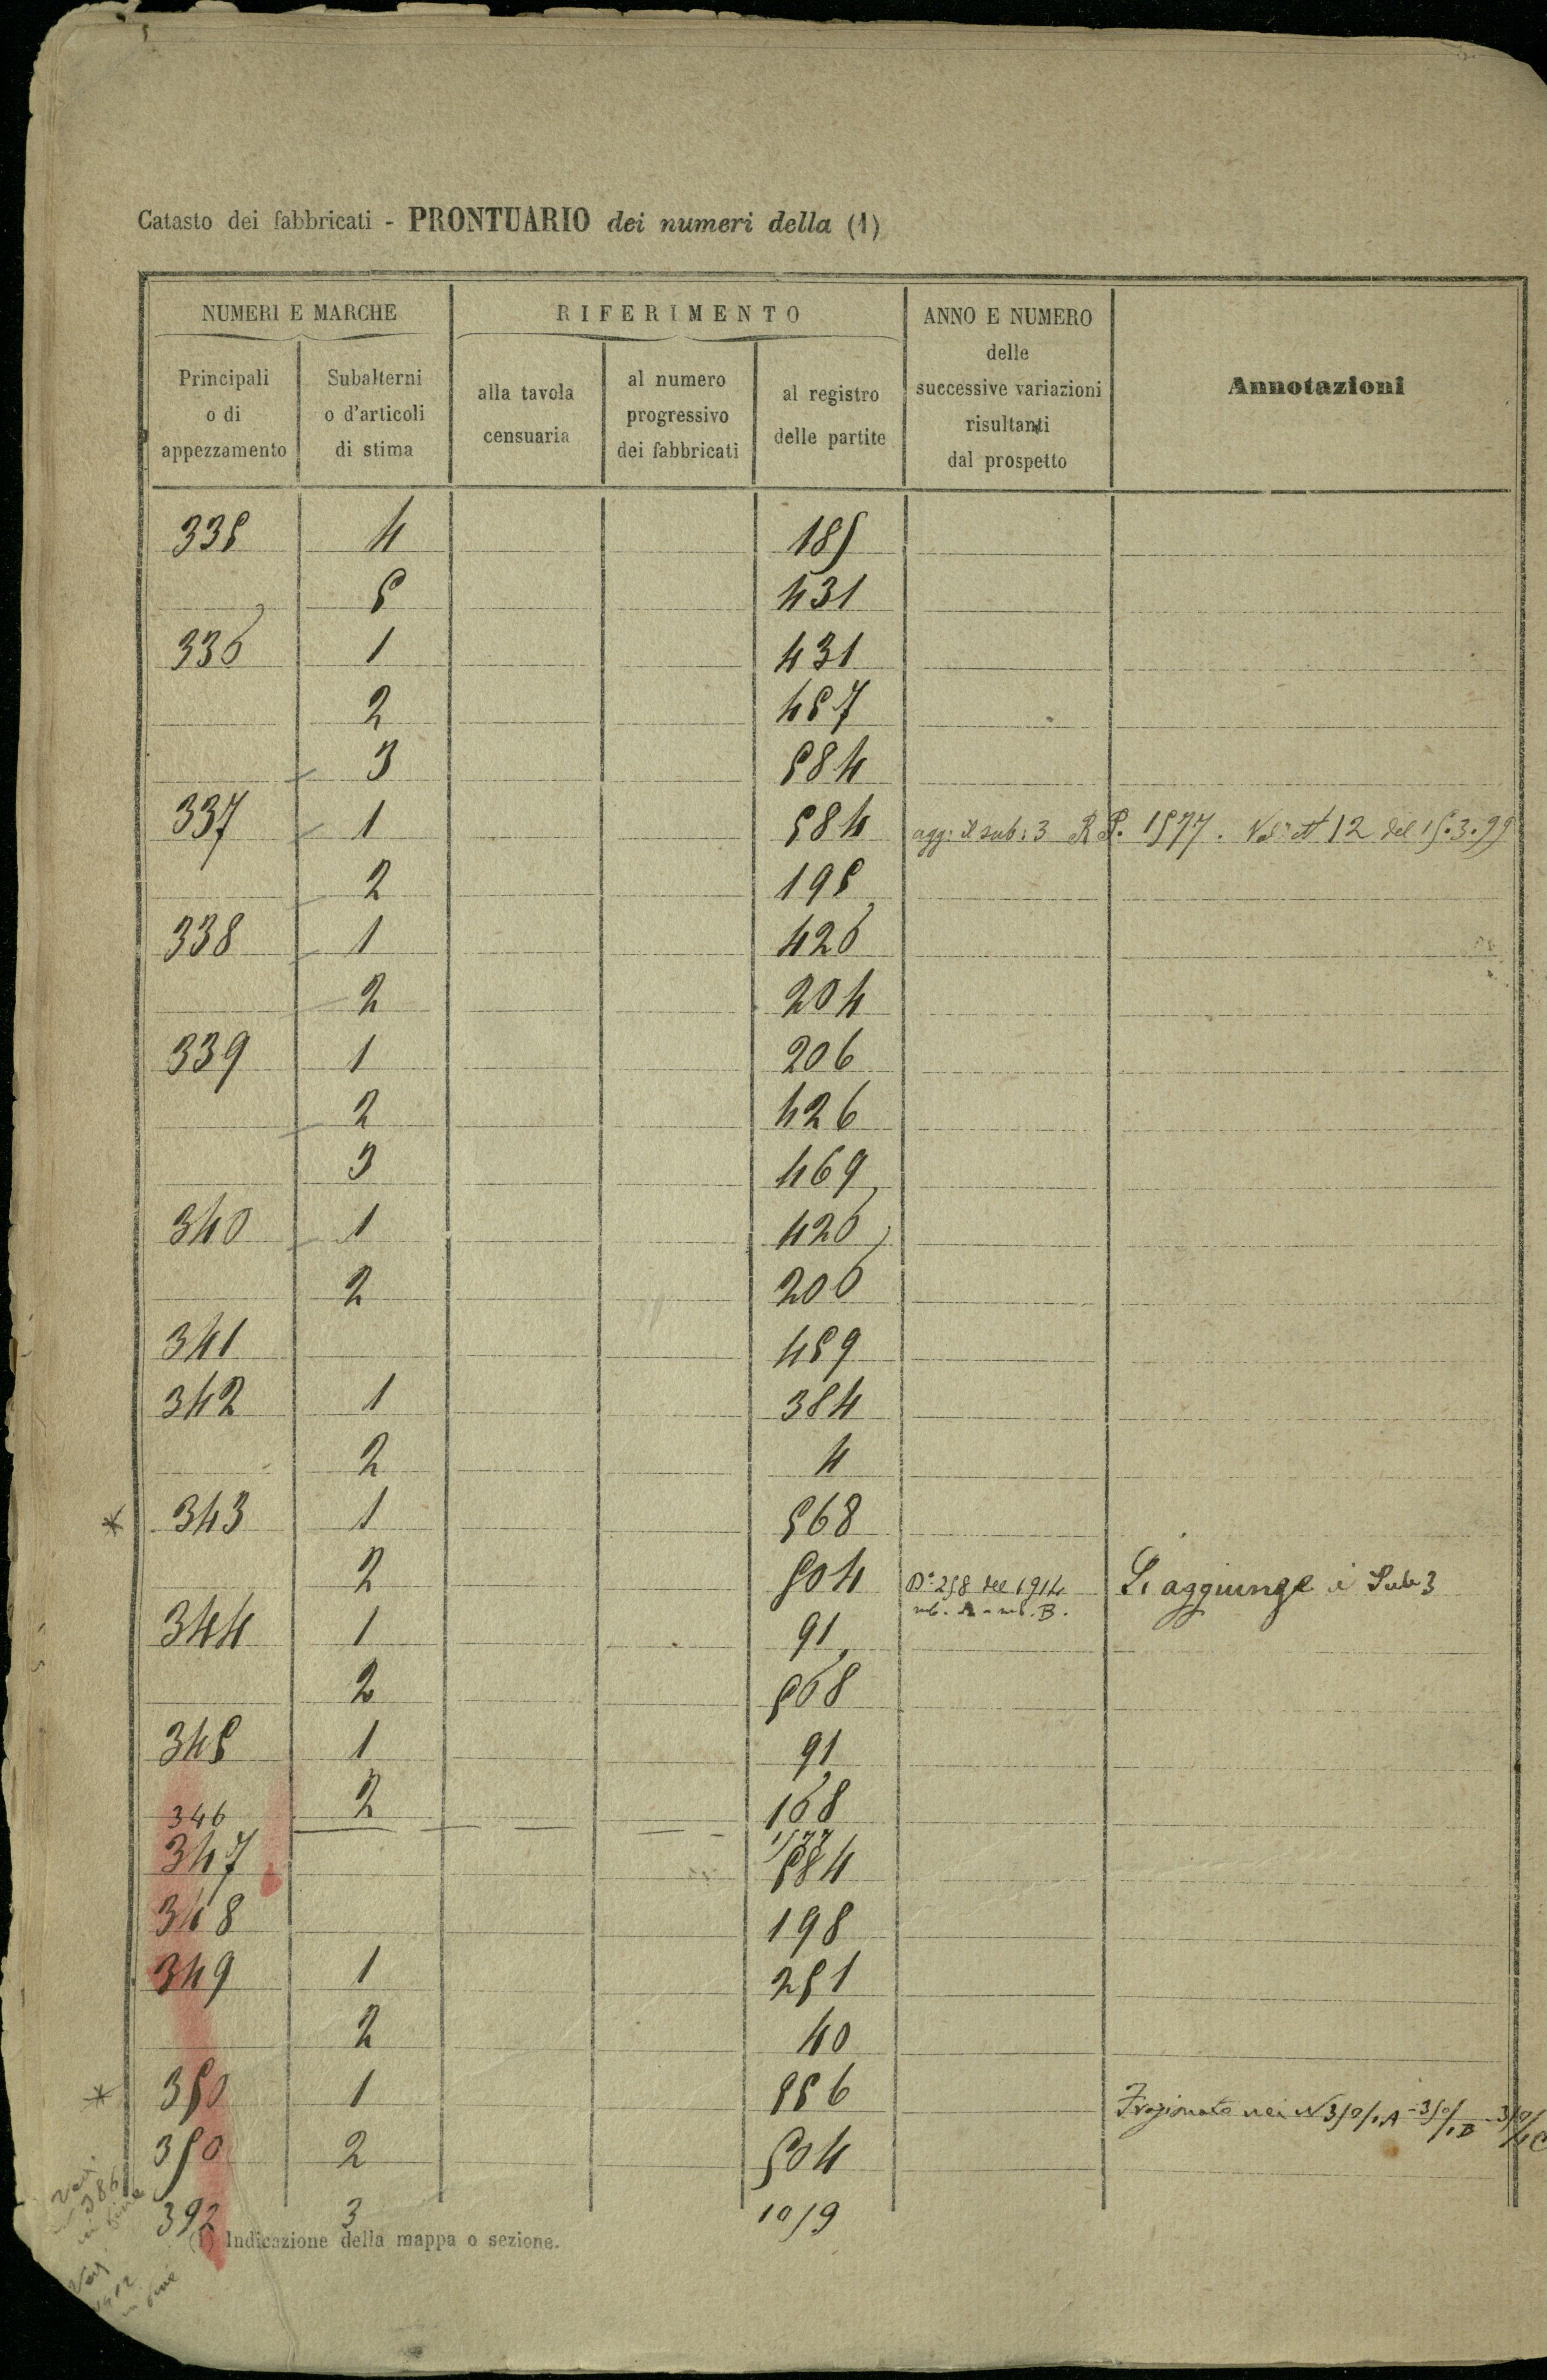 Catasto dei fabbricati - PRONTUARIO dei numeri della (1)
NUMERI E MARCHE
RIFERIMENTO
ANNO E NUMERO
delle
successive variazioni
risultanti
dal prospetto
Annotazioni
Principali
o di
appezzamento
Subalterni
o d'articoli
di stima
alla tavola
censuaria
al numero
progressivo
dei fabbricati
al registro
delle partite
335 4 185
5 431
336 1 431
2 457
3 584
337 1 584 agg: il sub: 3 R P. 1577. N 12 del 15.3.99
2 195
338 1 426
2 204
339 1 206
2 426
3 469
340 1 426
2 206
341 459
342 1 384
2 4
343 1 568
2 504 258 del 1914 Si aggiunge i Sub 3
sub. A - sub. B.
344 1 91
2 568
345 1 91
2 168
346
1577
347 584
348 198
349 1 251
2 40
350 1 556 Frazionato nei N 350/1A - 350/1B - 350/1C
350 2 504
392 3 1059
(1) Indicazione della mappa o sezione.